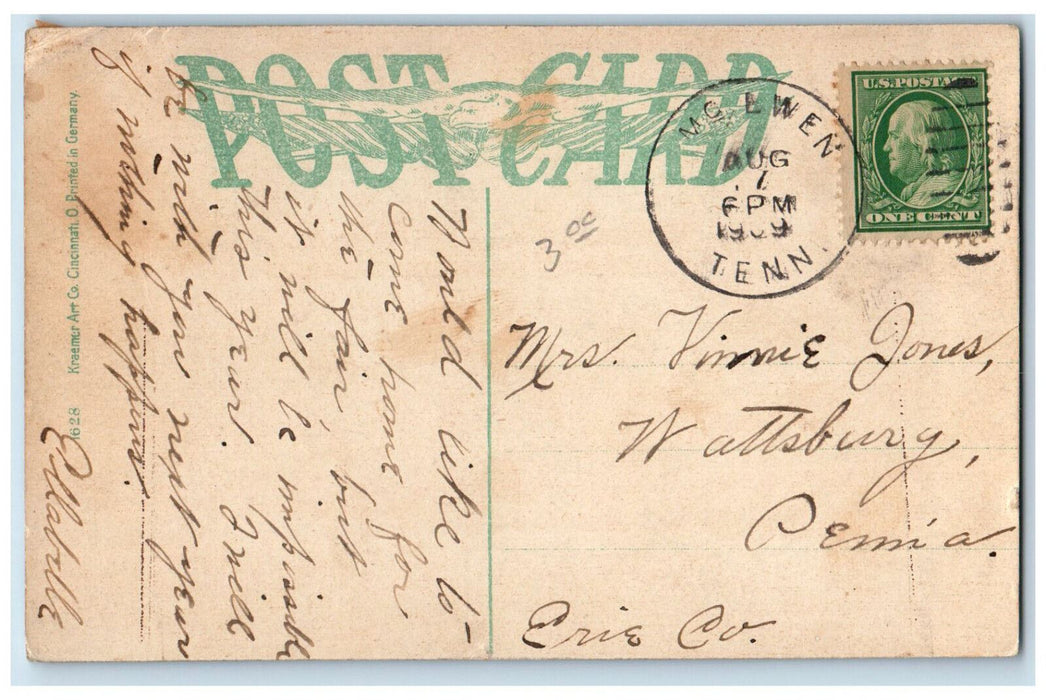 POST CARD
MC EWEN
AUG
7
6 PM
1909
TENN.
U.S. POSTAGE
ONE CENT
3 00
Would like to
come home for
the fair but
it will be impossible
this year. I will
be with you next year
if nothing happens.
Ellabelle
Mrs. Vinnie Jones,
Wattsburg,
Penn'a.
Erie Co.
1628 Kraemer Art Co. Cincinnati. O. Printed in Germany.